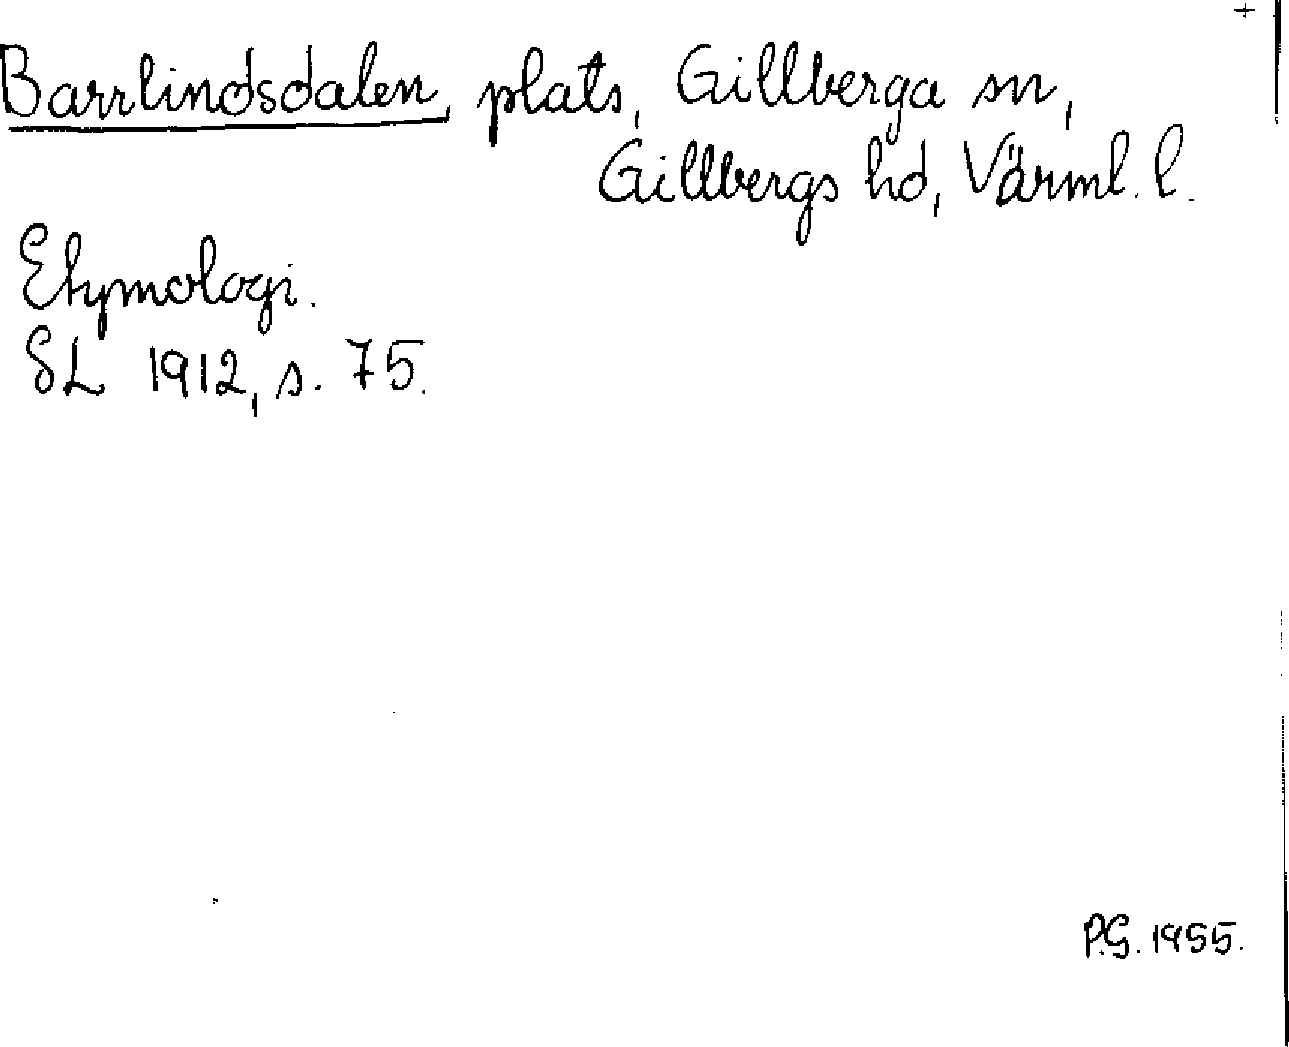 +
Barrlindsdalen, plats, Gillberga sn,
Gillbergs hd, Värml. l.
Etymologi.
SL 1912, s. 75.
P.G. 1955.